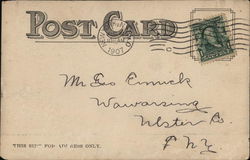 POST CARD
1907
Mr Geo
Wawarsing
Ulster Co.
N.Y.
THIS SIDE FOR ADDRESS ONLY.